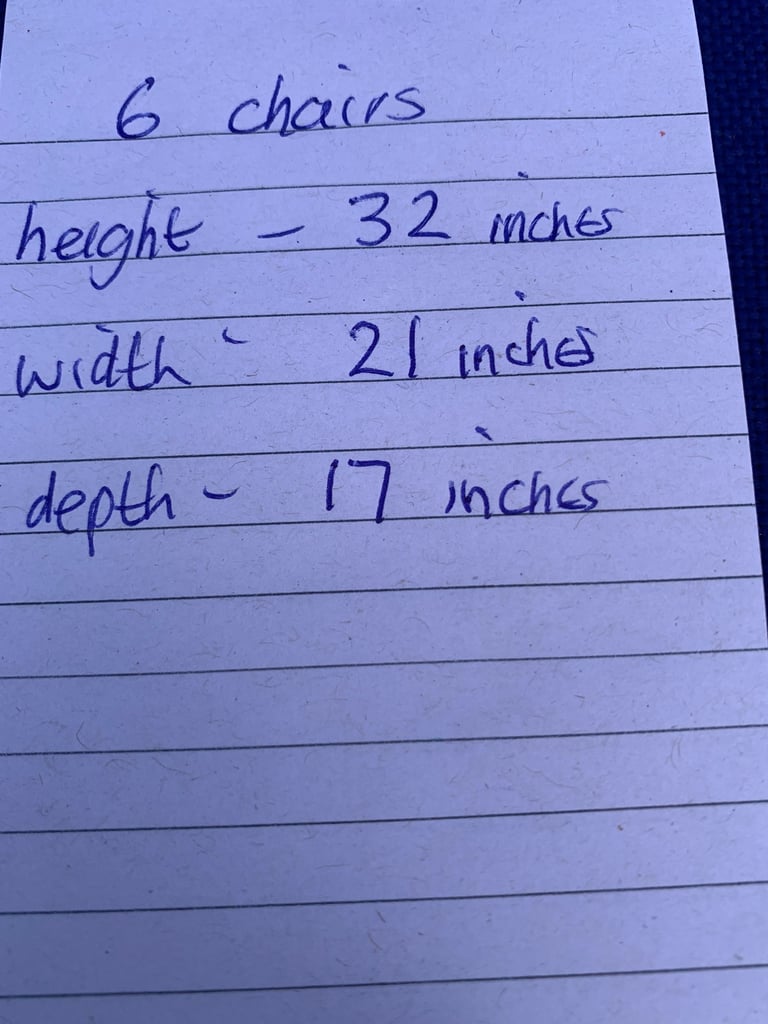 6 chairs
height - 32 inches
width - 21 inches
depth - 17 inches